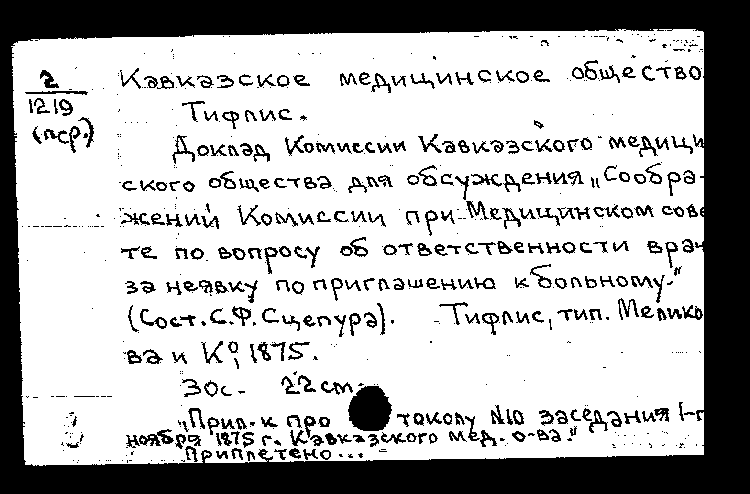 2
1219
(пср.)
Кавказское медицинское общество.
Тифлис.
Доклад Комиссии Кавказского медици
ского общества для обсуждения „Сообра-
жений Комиссии при Медицинском сове
те по вопросу об ответственности врач
за неявку по приглашению к больному."
(Сост. С.Ф. Сцепура). Тифлис, тип. Мелико
ва и К°, 1875.
30с. 22 cm.
„Прил. к протоколу №10 заседания 1-г
ноября 1875 г. Кавказского мед. о-ва."
Приплетено...